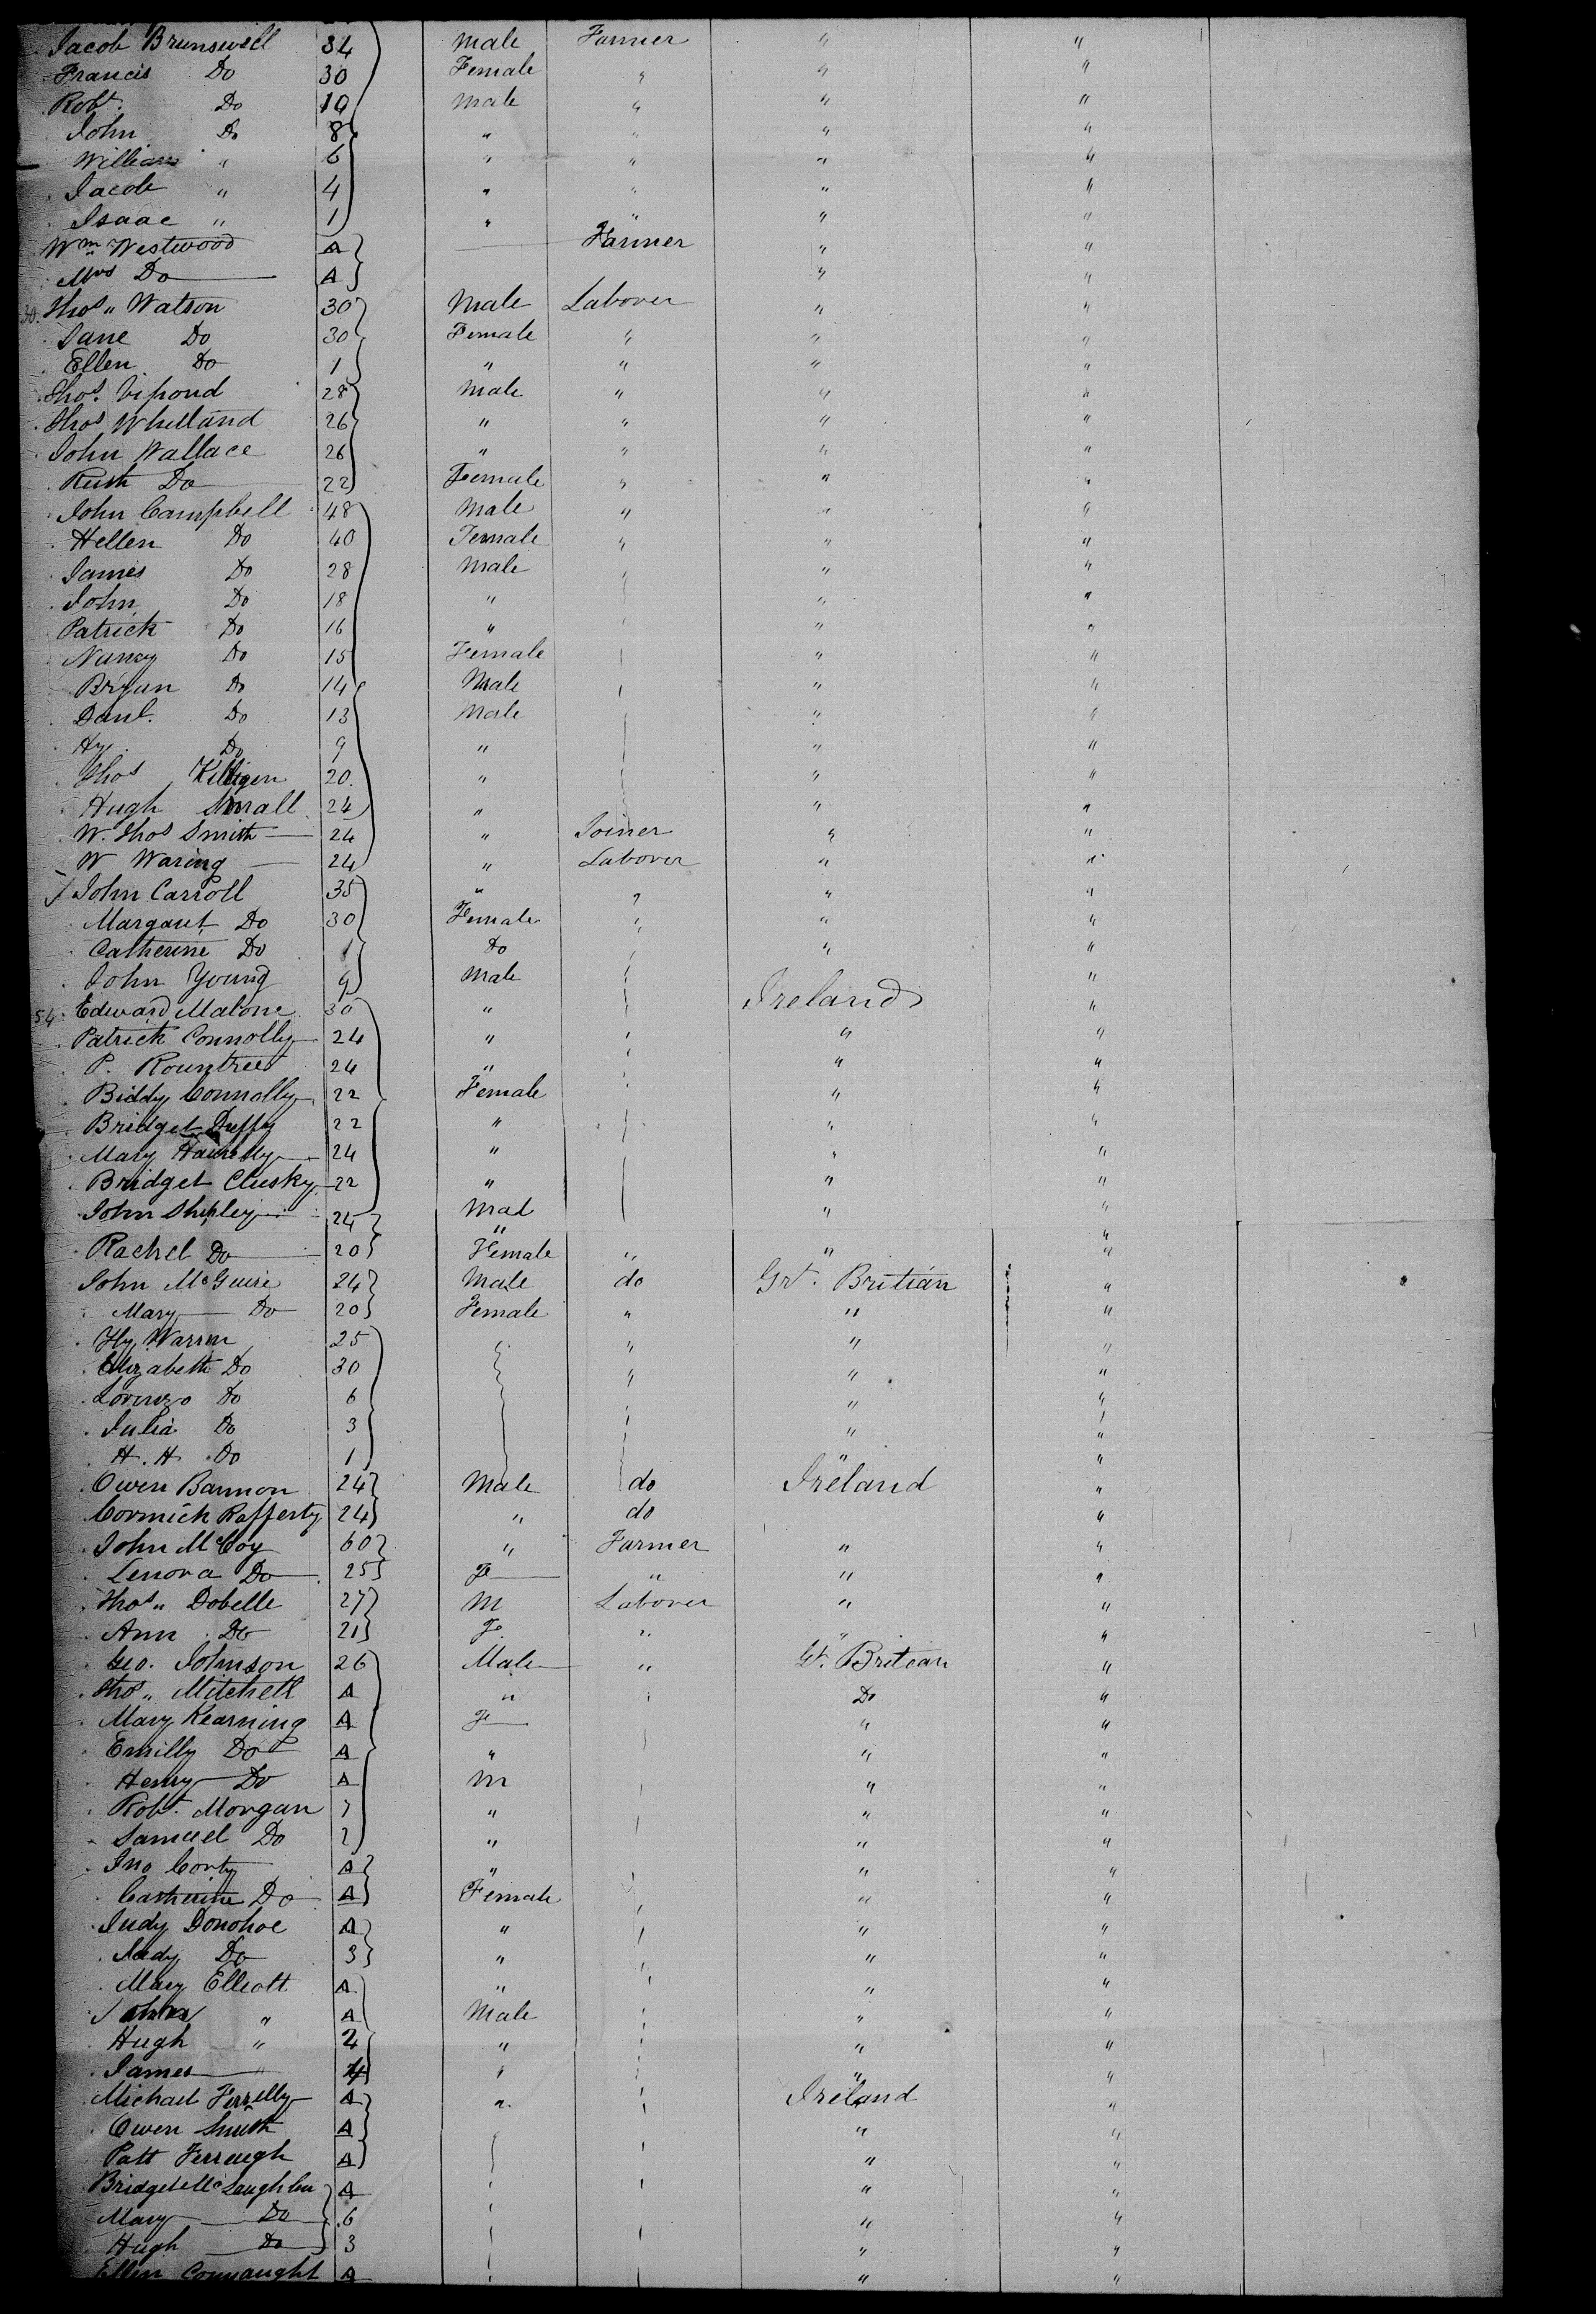 Jacob Brunswill 34 Male Farmer " "
Francis Do 30 Female " " "
Robt. Do 10 Male " " "
John Do 8 " " " "
William " 6 " " " "
Jacob " 4 " " " "
Isaac " 1 " " " "
Wm Westwood A Farmer " "
Mrs Do A " "
30. Thos " Watson 30 Male Labover " "
Jane Do 30 Female " " "
Ellen Do 1 " " " "
Thos. Vipond 28 Male " " "
Thos Whelland 26 " " " "
John Wallace 26 " " " "
Ruth Do 22 Female " " "
John Campbell 48 Male " " "
Hellen Do 40 Female " " "
James Do 28 Male " " "
John Do 18 " " "
Patrick Do 16 " " "
Nancy Do 15 Female " "
Bryan Do 14 Male " "
Danl. Do 13 Male " "
Hy. Do 9 " " "
Thos Killigen 20. " " "
Hugh Small 24 " " "
W. Thos Smith 24 " Joiner " "
W Waring 24 " Labover " "
John Carroll 35 " " " "
Margaret Do 30 Female " " "
Catherine Do 1 Do " "
John Young 9 Male "
54. Edward Malone 30 " Ireland "
Patrick Connolly 24 " " "
P. Rountree 24 " " "
Biddy Connolly 22 Female " "
Bridget Duffy 22 " " "
Mary 24 " " "
Bridget Clusky 22 " " "
John Shipley 24 Mal " "
Rachel Do 20 Female " " "
John McGuire 24 Male do Grt. Britian "
Mary Do 20 Female " " "
Hy. Warren 25 " " "
Elizabeth Do 30 " " "
Lorenzo Do 6 " "
Julia Do 3 " "
H. H. Do 1 " "
Owen Bannon 24 Male do Ireland "
Cormick Rafferty 24 " do "
John McCoy 60 " Farmer " "
Lenora Do 25 Fe " " "
Thos " Dobelle 27 M Labover " "
Ann Do 21 Fe " " "
Geo. Johnson 26 Male " Gt. Britean "
Thos " Mitchell A " Do "
Mary Kearning A Fe " "
Emilly Do A " " "
Henry Do A M " "
Robt. Morgan 7 " " "
Samuel Do 2 " " "
Jno Corty A " " "
Catherine Do A Female " "
Judy Donohoe A " " "
Judy Do 3 " " "
Mary Elliott A " " "
John " A Male " "
Hugh " 2 " " "
James " 4 " " "
Michael Ferrelly A " Ireland "
Owen Smith A " "
Patt Ferreugh A " "
Bridget McLaughlin A " "
Mary Do 6 " "
Hugh Do 3 " "
Ellen Connaught A " "